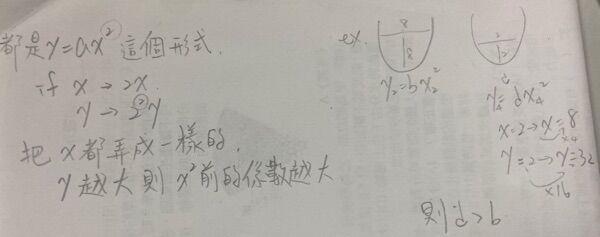 都是y=ax²這個形式.
if x→2x.
y→2²y
把x都弄成一樣的.
y越大則x²前的係數越大
ex.
8
8
y₂=bx₂²
2
2
y₄=dx₄²
x=2→x=8
x4
y=2→y=32
x16
則d>b